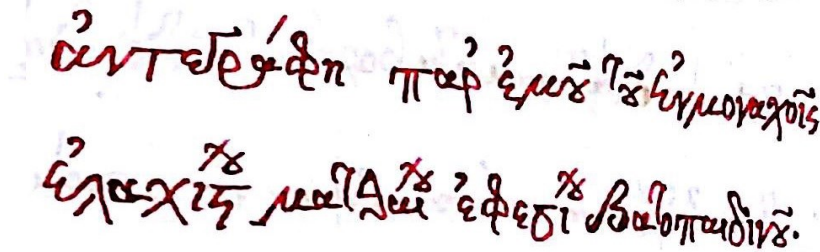 ἀντεγράφη παρ' ἐμοῦ τοῦ ἐν μοναχοῖς
ἐλαχίστου ματθαίου ἐφεσίου βατοπαιδινοῦ.